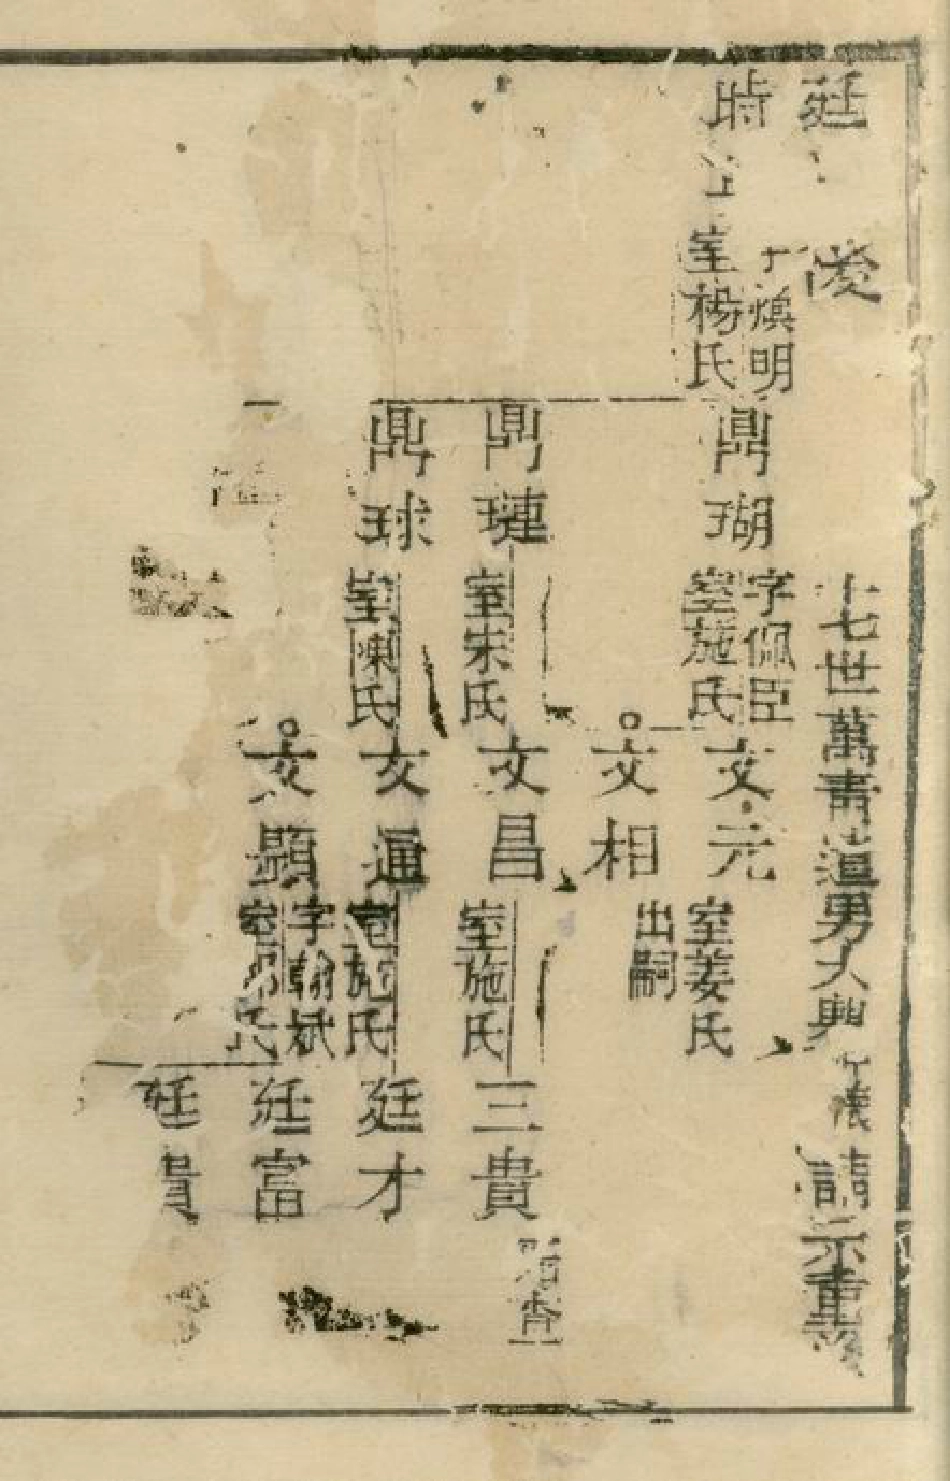 廷
十七世萬青
男大興
請示重
時
字煥明
室楊氏
鼎瑚
字佩臣
室施氏
文元
室姜氏
文相
出嗣
鼎璉
室宋氏
文昌
室施氏
三貴
鼎球
室陳氏
文通
室施氏
廷才
文顯
字翰斌
氏
廷富
廷貴